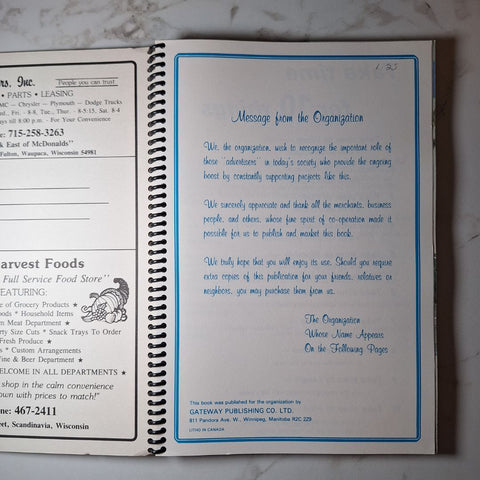 rs, Inc.
People you can trust
PARTS • LEASING
MC — Chrysler — Plymouth — Dodge Trucks
Fri. - 8-8, Tue., Thur. - 8-5:15, Sat. 8-4
till 8:00 p.m. - For Your Convenience
715-258-3263
Fulton, Waupaca, Wisconsin 54981
& East of McDonalds"
arvest Foods
Full Service Food Store"
FEATURING:
e of Grocery Products ★
oods * Household Items
Meat Department ★
rty Size Cuts * Snack Trays To Order
Fresh Produce ★
s * Custom Arrangements
ine & Beer Department ★
ELCOME IN ALL DEPARTMENTS ★
shop in the calm convenience
own with prices to match!"
ne: 467-2411
eet, Scandinavia, Wisconsin
Message from the Organization
We, the organization, wish to recognize the important role of
those "advertisers" in today's society who provide the ongoing
boost by constantly supporting projects like this.
We sincerely appreciate and thank all the merchants, business
people, and others, whose fine spirit of co-operation made it
possible for us to publish and market this book.
We truly hope that you will enjoy its use. Should you require
extra copies of this publication for your friends, relatives or
neighbors, you may purchase them from us.
The Organization
Whose Name Appears
On the Following Pages
This book was published for the organization by
GATEWAY PUBLISHING CO. LTD.
811 Pandora Ave. W., Winnipeg, Manitoba R2C 2Z9
LITHO IN CANADA